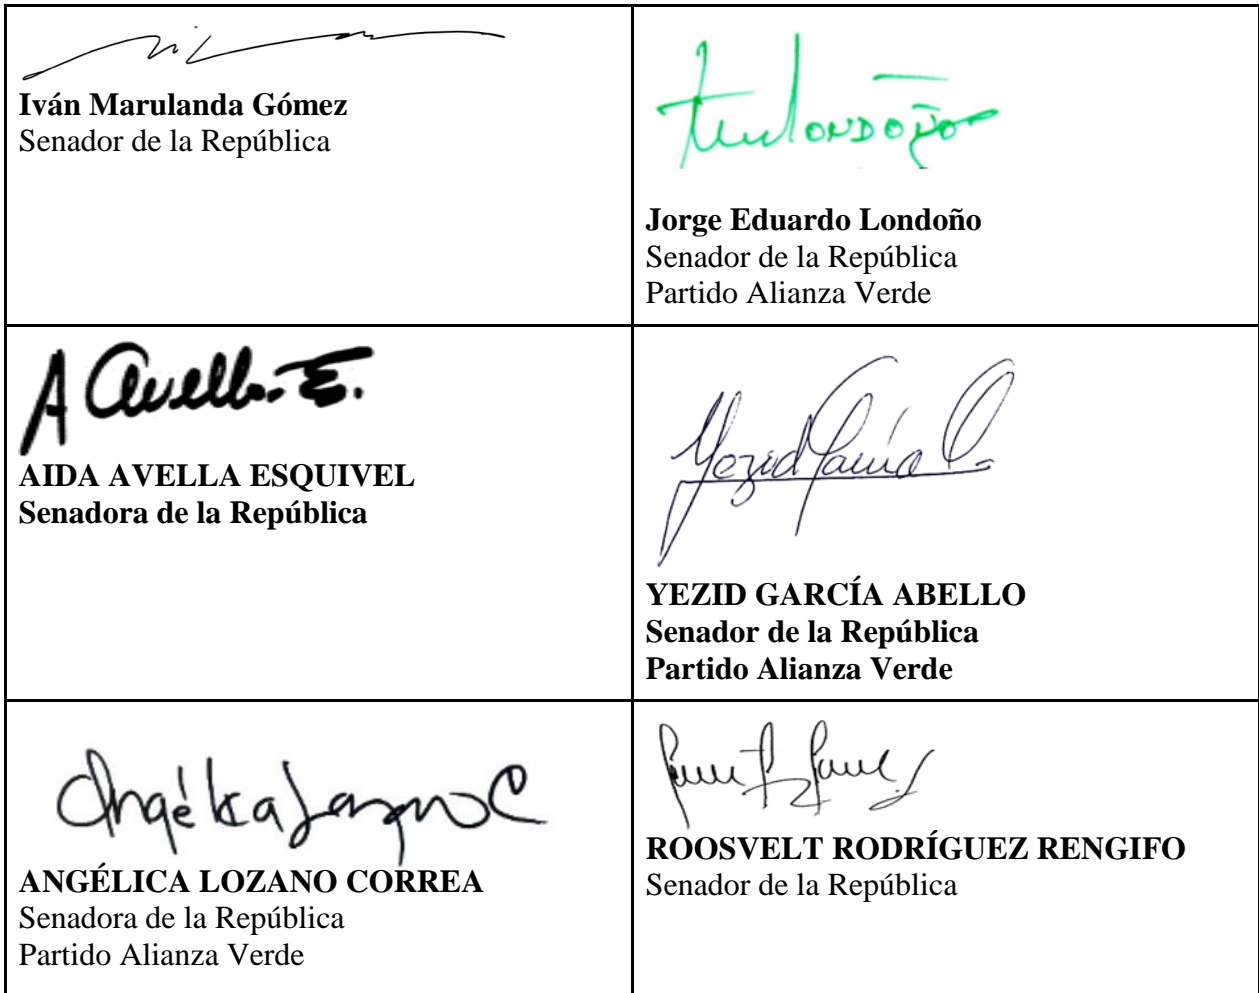 Iván Marulanda Gómez
Senador de la República
LONDOÑO
Jorge Eduardo Londoño
Senador de la República
Partido Alianza Verde
A Avella E.
AIDA AVELLA ESQUIVEL
Senadora de la República
Yezid García
YEZID GARCÍA ABELLO
Senador de la República
Partido Alianza Verde
Angélica Lozano C
ANGÉLICA LOZANO CORREA
Senadora de la República
Partido Alianza Verde
ROOSVELT RODRÍGUEZ RENGIFO
Senador de la República